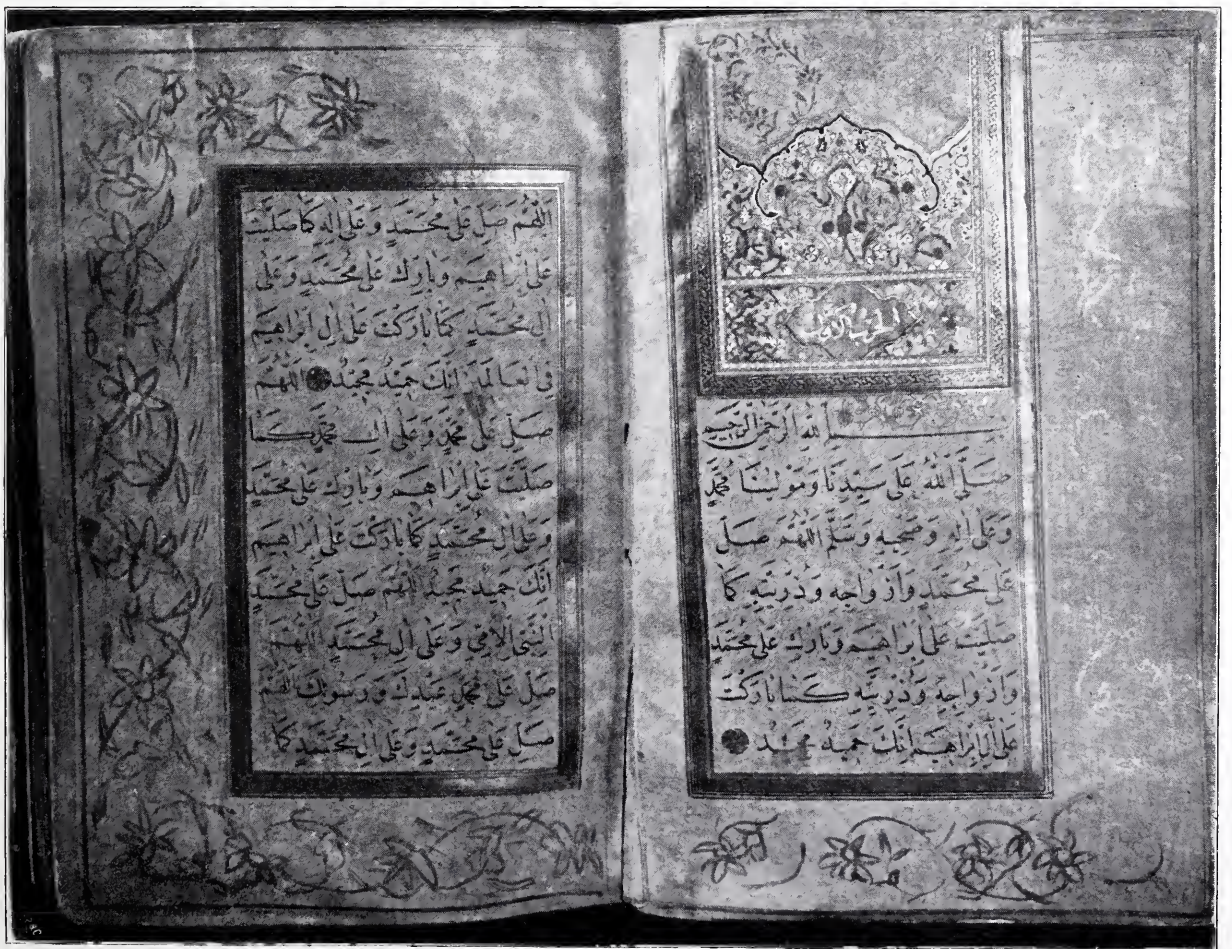 الحزب الاول
بسم الله الرحمن الرحيم
صَلَّى اللهُ عَلَى سَيِّدِنَا وَمَوْلٰينَا مُحَمَّدٍ
وَعَلَى اٰلِهِ وَصَحْبِهِ وَسَلَّمَ اللّٰهُمَّ صَلِّ
عَلَى مُحَمَّدٍ وَاَزْوَاجِهِ وَذُرِّيَّتِهِ كَمَا
صَلَّيْتَ عَلَى اِبْرَاهِيمَ وَبَارِكْ عَلَى مُحَمَّدٍ
وَاَزْوَاجِهِ وَذُرِّيَّتِهِ كَمَا بَارَكْتَ
عَلَى اٰلِ اِبْرَاهِيمَ اِنَّكَ حَمِيدٌ مَجِيدٌ
اللّٰهُمَّ صَلِّ عَلَى مُحَمَّدٍ وَعَلَى اٰلِهِ كَمَا صَلَّيْتَ
عَلَى اِبْرَاهِيمَ وَبَارِكْ عَلَى مُحَمَّدٍ وَعَلَى
اٰلِ مُحَمَّدٍ كَمَا بَارَكْتَ عَلَى اٰلِ اِبْرَاهِيمَ
فِي الْعَالَمِينَ اِنَّكَ حَمِيدٌ مَجِيدٌ اللّٰهُمَّ
صَلِّ عَلَى مُحَمَّدٍ وَعَلَى اٰلِ مُحَمَّدٍ كَمَا
صَلَّيْتَ عَلَى اِبْرَاهِيمَ وَبَارِكْ عَلَى مُحَمَّدٍ
وَعَلَى اٰلِ مُحَمَّدٍ كَمَا بَارَكْتَ عَلَى اِبْرَاهِيمَ
اِنَّكَ حَمِيدٌ مَجِيدٌ اللّٰهُمَّ صَلِّ عَلَى مُحَمَّدٍ
النَّبِيِّ الْاُمِّيِّ وَعَلَى اٰلِ مُحَمَّدٍ اللّٰهُمَّ
صَلِّ عَلَى مُحَمَّدٍ عَبْدِكَ وَرَسُولِكَ اللّٰهُمَّ
صَلِّ عَلَى مُحَمَّدٍ وَعَلَى اٰلِ مُحَمَّدٍ كَمَا